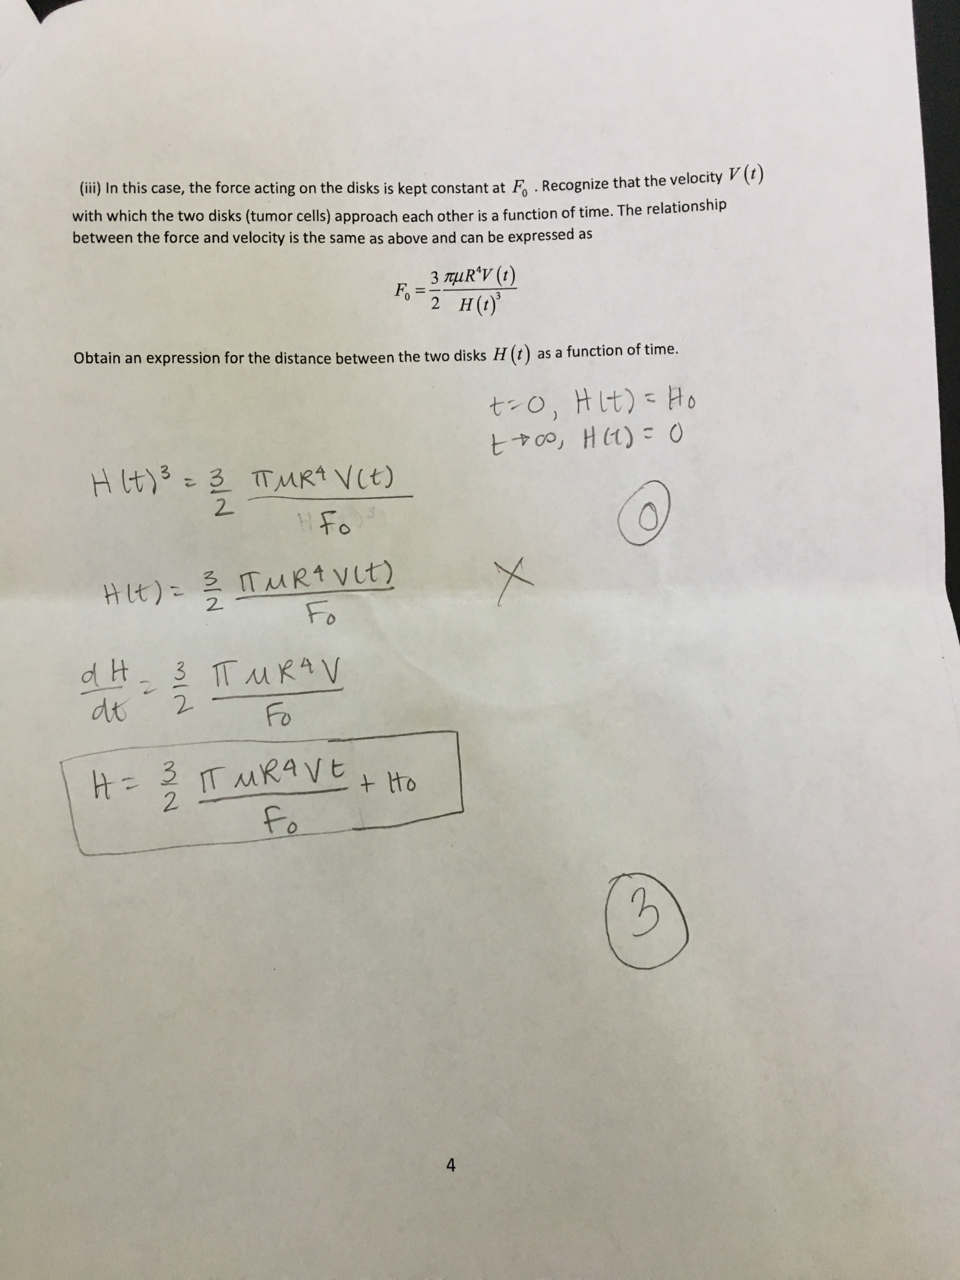 (iii) In this case, the force acting on the disks is kept constant at F₀ . Recognize that the velocity V(t)
with which the two disks (tumor cells) approach each other is a function of time. The relationship
between the force and velocity is the same as above and can be expressed as
F₀ = 3/2 πμR⁴V(t)/H(t)³
Obtain an expression for the distance between the two disks H(t) as a function of time.
t=0, H(t) = H₀
t→∞, H(t) = 0
H(t)³ = 3/2 πμR⁴V(t)/F₀
0
H(t) = 3/2 πμR⁴V(t)/F₀ X
dH/dt = 3/2 πμR⁴V/F₀
H = 3/2 πμR⁴Vt/F₀ + H₀
3
4